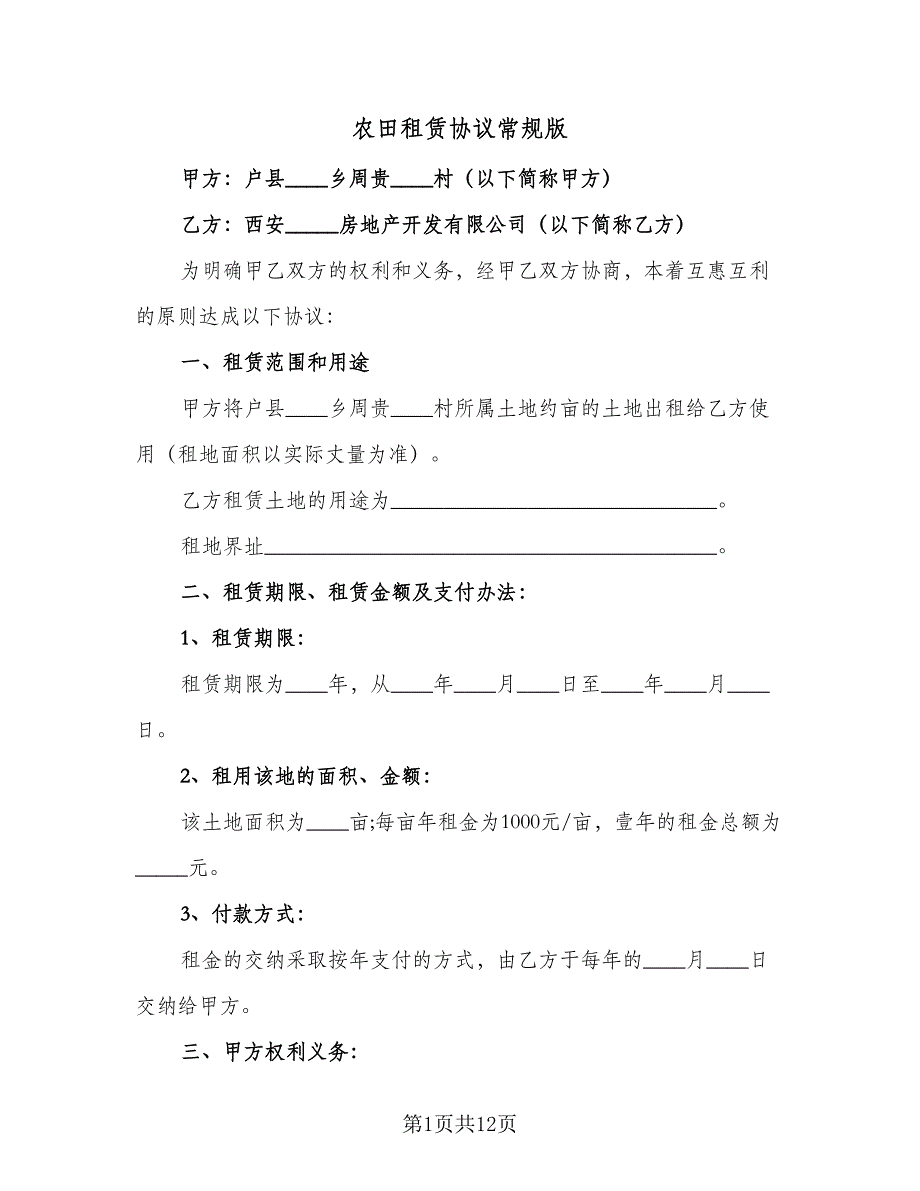 农田租赁协议常规版
甲方：户县____乡周贵____村（以下简称甲方）
乙方：西安_____房地产开发有限公司（以下简称乙方）
为明确甲乙双方的权利和义务，经甲乙双方协商，本着互惠互利
的原则达成以下协议：
一、租赁范围和用途
甲方将户县____乡周贵____村所属土地约亩的土地出租给乙方使
用（租地面积以实际丈量为准）。
乙方租赁土地的用途为_______________________________。
租地界址___________________________________________。
二、租赁期限、租赁金额及支付办法：
1、租赁期限：
租赁期限为____年，从____年____月____日至____年____月____
日。
2、租用该地的面积、金额：
该土地面积为____亩;每亩年租金为1000元/亩，壹年的租金总额为
_____元。
3、付款方式：
租金的交纳采取按年支付的方式，由乙方于每年的____月____日
交纳给甲方。
三、甲方权利义务：
第1页共12页